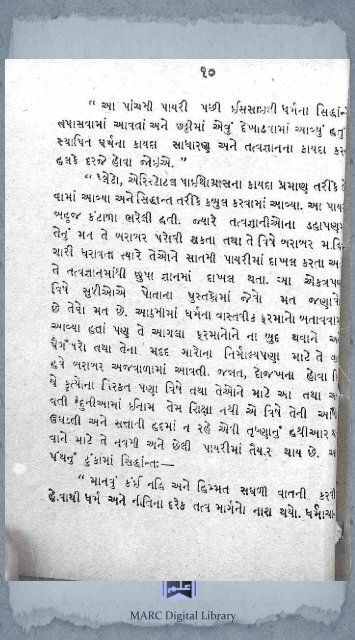 ૧૦
“ આ પાંચમી પાયરી પછી ઈસમાઇલી ધર્મના સિદ્ધાંતો
તપાસવામાં આવતાં અને છઠ્ઠીમાં એવું દેખાડવામાં આવ્યું હતું
સ્થાપિત ધર્મના કાયદા સાધારણ અને તત્વજ્ઞાનના કાયદા કરતાં
હલકે દરજે હોવા જોઇએ. ”
“ પ્લેટો, એરિસ્ટોટલ પાઈથાગ્રાસના કાયદા પ્રમાણુ તરીકે
વામાં આવ્યા અને સિદ્ધાન્ત તરીકે કબુલ કરવામાં આવ્યા. આ પાયરી
બહુજ કંટાળા ભરેલી હતી. જ્યારે તત્વજ્ઞાનીઓના ડહાપણ
તેનું મન તે બરાબર પરોવી શકતા તથા તે વિષે બરાબર
ગારી ધરાવતા ત્યારે તેઓને સાતમી પાયરીમાં દાખલ કરતા
તે તત્વજ્ઞાનમાંથી છુપા જ્ઞાનમાં દાખલ થતા. આ એકત્રપણા
વિષે સુફીઓએ પોતાના પુસ્તકોમાં જેવો મત જણાવ્યો
છે તેવો મત છે. આઠમીમાં ધર્મના વાસ્તવીક ફરમાનો બતાવવામાં
આવ્યા હતાં પણ તે આગલા ફરમાનોને નાબુદ થવાને
પૈગંબરો તથા તેના મદદ ગારોના નિર્મૂલપણા માટે તે
હવે બરાબર અજવાળામાં આવતી. જન્નત, દોજખના હોવા
કૃત્યોના નિરર્થક પણા વિષે તથા તેઓને માટે આ તથા
વતી દુનીઆમાં ઈનામ તેમ શિક્ષા નથી એ વિષે તેની
ઉઘડતી અને સત્તાની હદમાં ન રહે એવી તૃષ્ણાનું હથીઆર
વાને માટે તે નવમી અને છેલી પાયરીમાં તૈયાર થાય છે.
પંથનું ટુંકામાં સિદ્ધાંત:—
“ માનવું કંઈ નહિ અને હિમ્મત સઘળી વાતની કરવી
તેવાથી ધર્મ અને નીતિના દરેક તત્વ માર્ગનો નાશ થયો.
MARC Digital Library